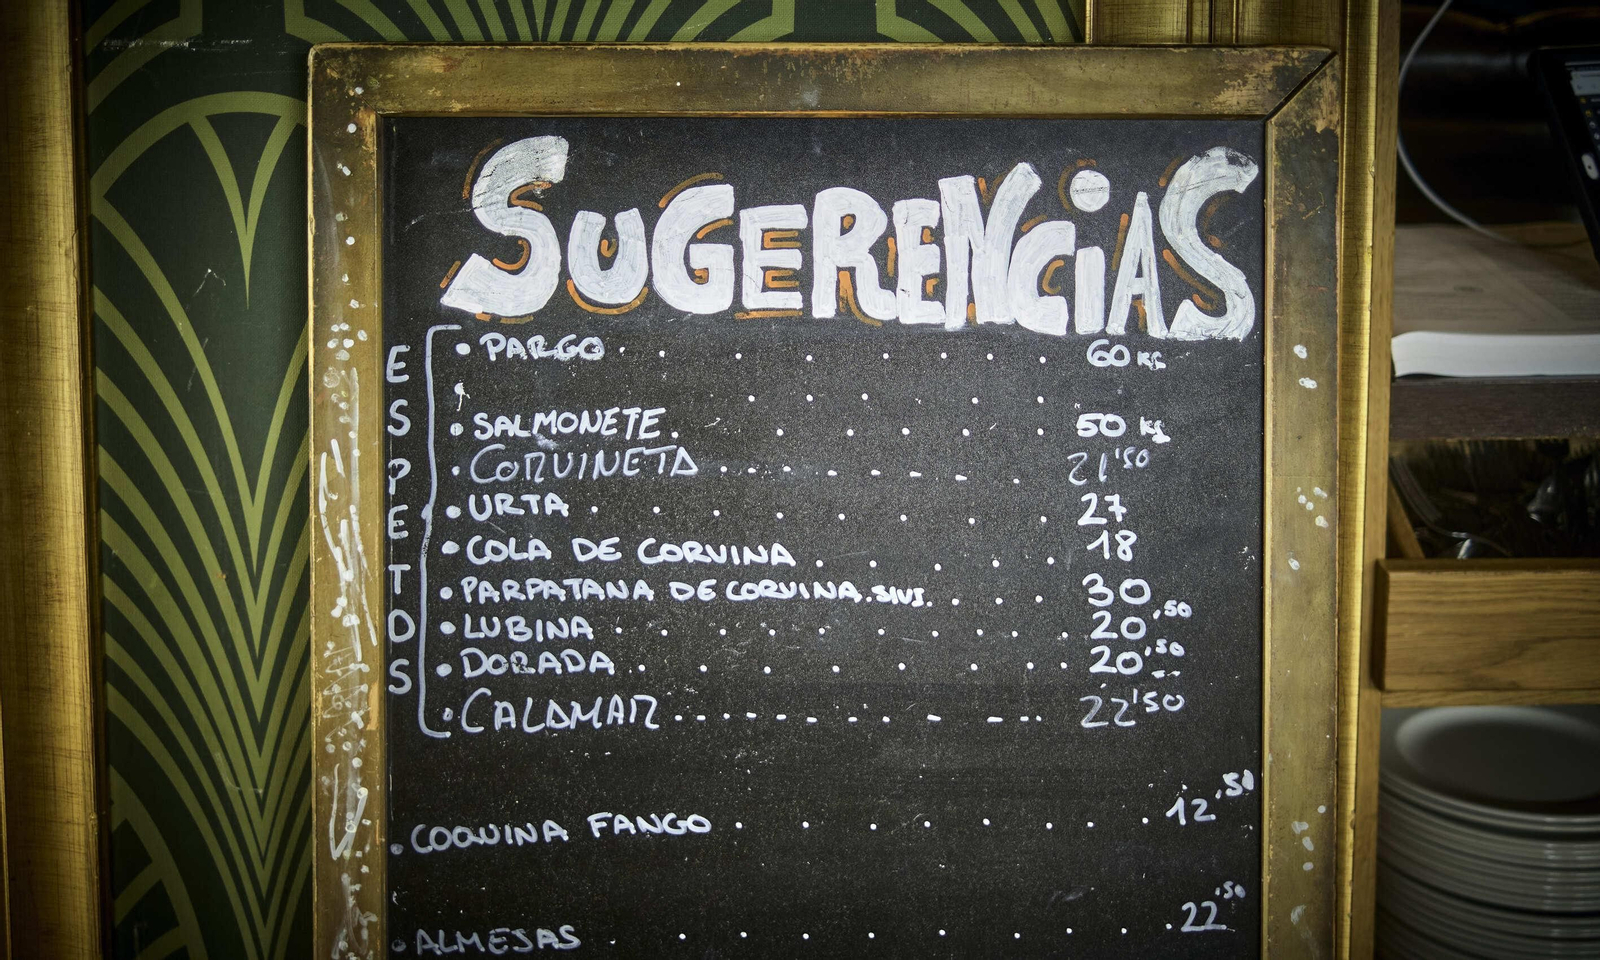 SUGERENCiAS
ESPETOS
• PARGO . . . . . . . . 60 KG
• SALMONETE. . . . . . . 50 KG
• CORVINETA . . . - - - - . 21'50
• URTA . . . . . . . . 27
• COLA DE CORVINA . . . . . 18
• PARPATANA DE CORVINA. . . . 30
• LUBINA . . . . . . . . . . 20,50
• DORADA . . . . . . . . 20'50
• CALAMAR . . . - - - - - - - - - 22'50
• COQUINA FANGO . . . . . . . 12,50
• ALMEJAS . . . . . . . 22,50